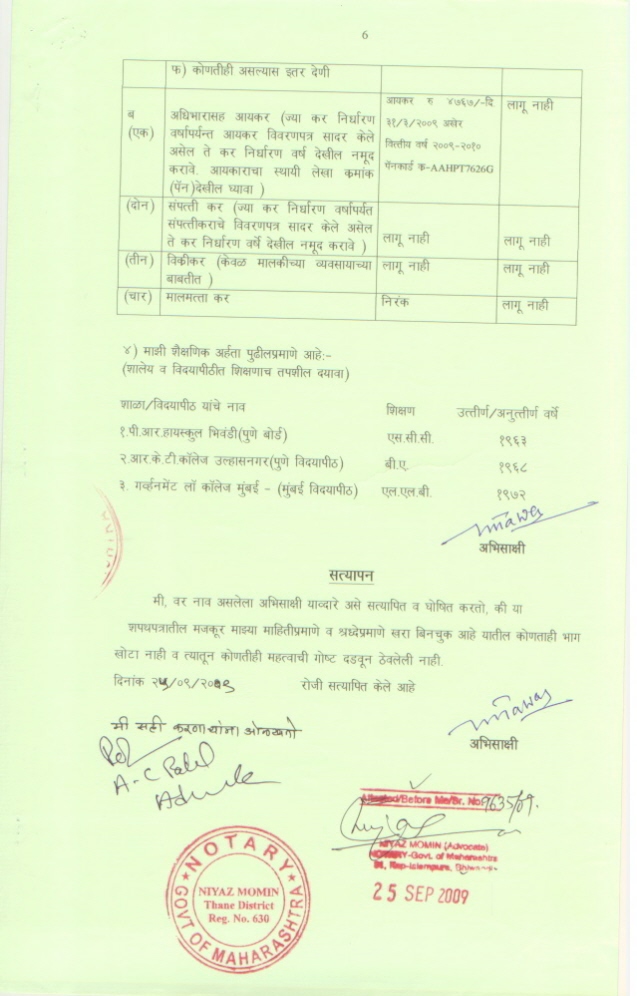 6
फ) कोणतीही असल्यास इतर देणी
ब
(एक)
अधिभारासह आयकर (ज्या कर निर्धारण
वर्षापर्यन्त आयकर विवरणपत्र सादर केले
असेल ते कर निर्धारण वर्ष देखील नमूद
करावे. आयकाराचा स्थायी लेखा कमांक
(पॅन)देखील घ्यावा )
आयकर रु ४७६७/-दि
३१/३/२००९ अखेर
वित्तीय वर्ष २००९-२०१०
पॅनकार्ड क-AAHPT7626G
लागू नाही
(दोन)
संपत्ती कर (ज्या कर निर्धारण वर्षापर्यत
संपत्तीकराचे विवरणपत्र सादर केले असेल
ते कर निर्धारण वर्षे देखील नमूद करावे )
लागू नाही
लागू नाही
(तीन)
विकीकर (केवळ मालकीच्या व्यवसायाच्या
बाबतीत )
लागू नाही
लागू नाही
(चार)
मालमत्ता कर
निरंक
लागू नाही
४) माझी शैक्षणिक अर्हता पुढीलप्रमाणे आहे:-
(शालेय व विदयापीठीत शिक्षणाच तपशील दयावा)
शाळा/विदयापीठ यांचे नाव शिक्षण उत्तीर्ण/अनुत्तीर्ण वर्षे
१.पी.आर.हायस्कुल भिवंडी(पुणे बोर्ड) एस.सी.सी. १९६३
२.आर.के.टी.कॉलेज उल्हासनगर(पुणे विदयापीठ) बी.ए. १९६८
३. गर्व्हनमेंट लॉ कॉलेज मुंबई - (मुंबई विदयापीठ) एल.एल.बी. १९७२
अभिसाक्षी
सत्यापन
मी, वर नाव असलेला अभिसाक्षी याव्दारे असे सत्यापित व घोषित करतो, की या
शपथपत्रातील मजकूर माझ्या माहितीप्रमाणे व श्रध्देप्रमाणे खरा बिनचुक आहे यातील कोणताही भाग
खोटा नाही व त्यातून कोणतीही महत्वाची गोष्ट दडवून ठेवलेली नाही.
दिनांक २५/०९/२००९ रोजी सत्यापित केले आहे
मी सही करणाऱ्यांना ओळखतो
अभिसाक्षी
A-C Patel
Advocate
/Before Me/Sr. No 9635/09.
NIYAZ MOMIN (Advocate)
NOTARY-Govt. of Maharashtra
25 SEP 2009
NOTARY
NIYAZ MOMIN
Thane District
Reg. No. 630
GOVT OF MAHARASHTRA